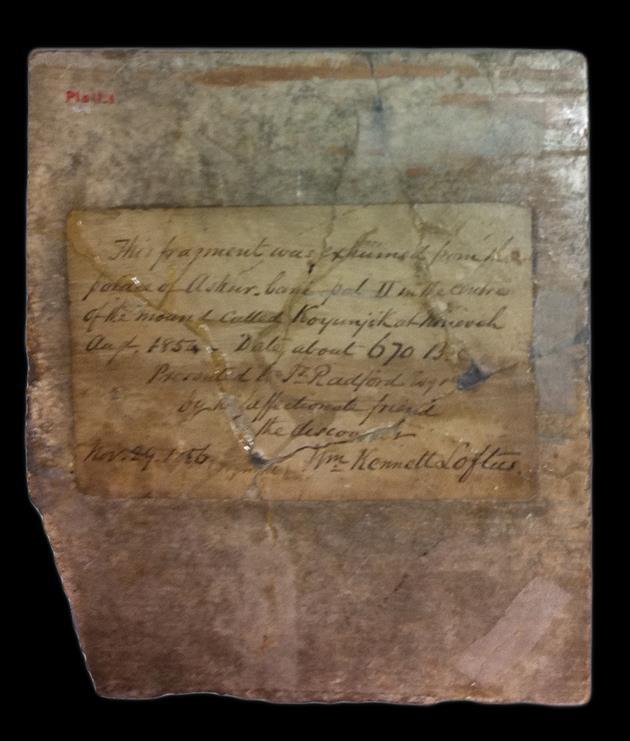 This fragment was exhumed from the
palace of Ashur-bani-pal II in the centre
of the mound called Koyunjik at Nineveh
Augt. 1854 - Date about 670 B.C.
Presented to Radford Esqr
by his affectionate friend
the discoverer
Nov. 29. 1856 Wm Kennett Loftus.